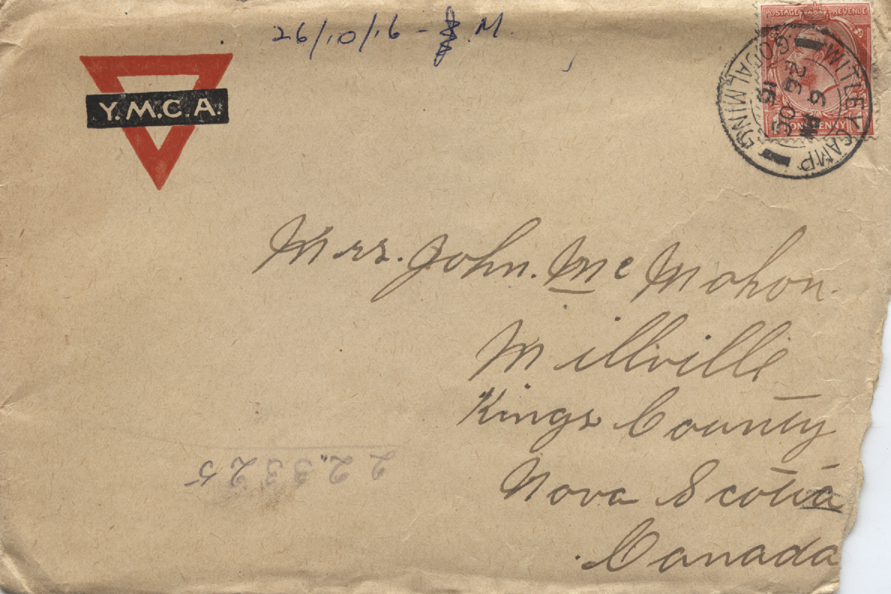 26/10/16 - M.
POSTAGE REVENUE
ONE PENNY
WITLEY CAMP
GODALMING
6 PM
26 OC
16
Y.M.C.A.
Mrs. John. Mc Mahon.
Millville
Kings County
Nova Scotia
Canada